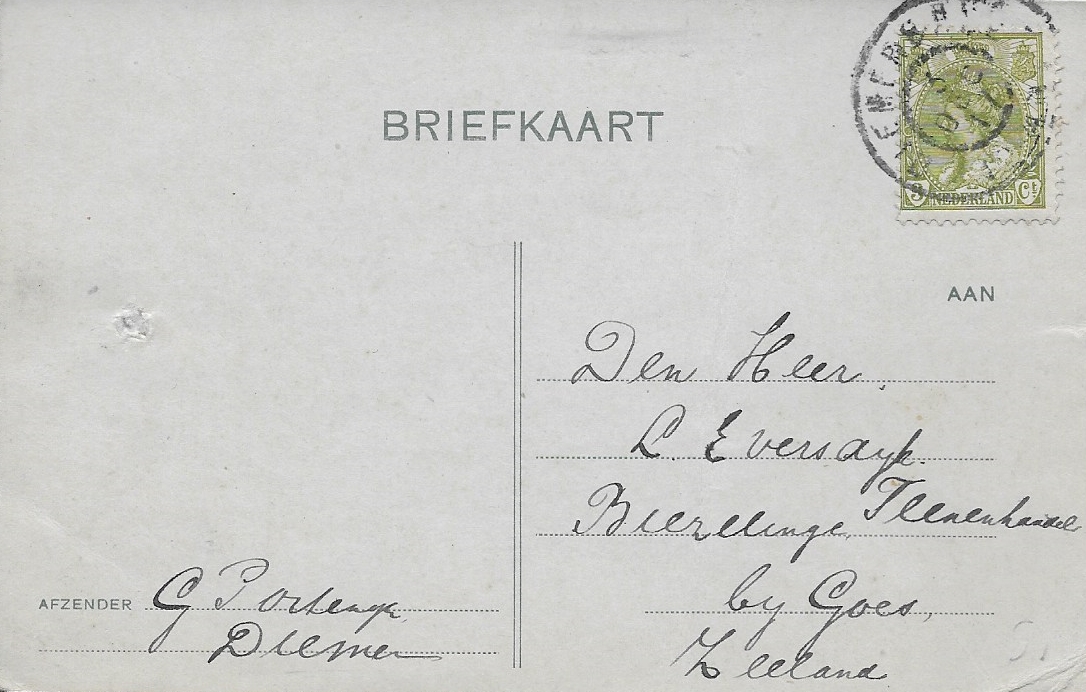 BRIEFKAART
3 Ct
NEDERLAND
AAN
Den Heer,
L. Eversdyk.
Biezelinge, Teenenhandel
by Goes,
Zeeland
AFZENDER G Portengk
Diemen